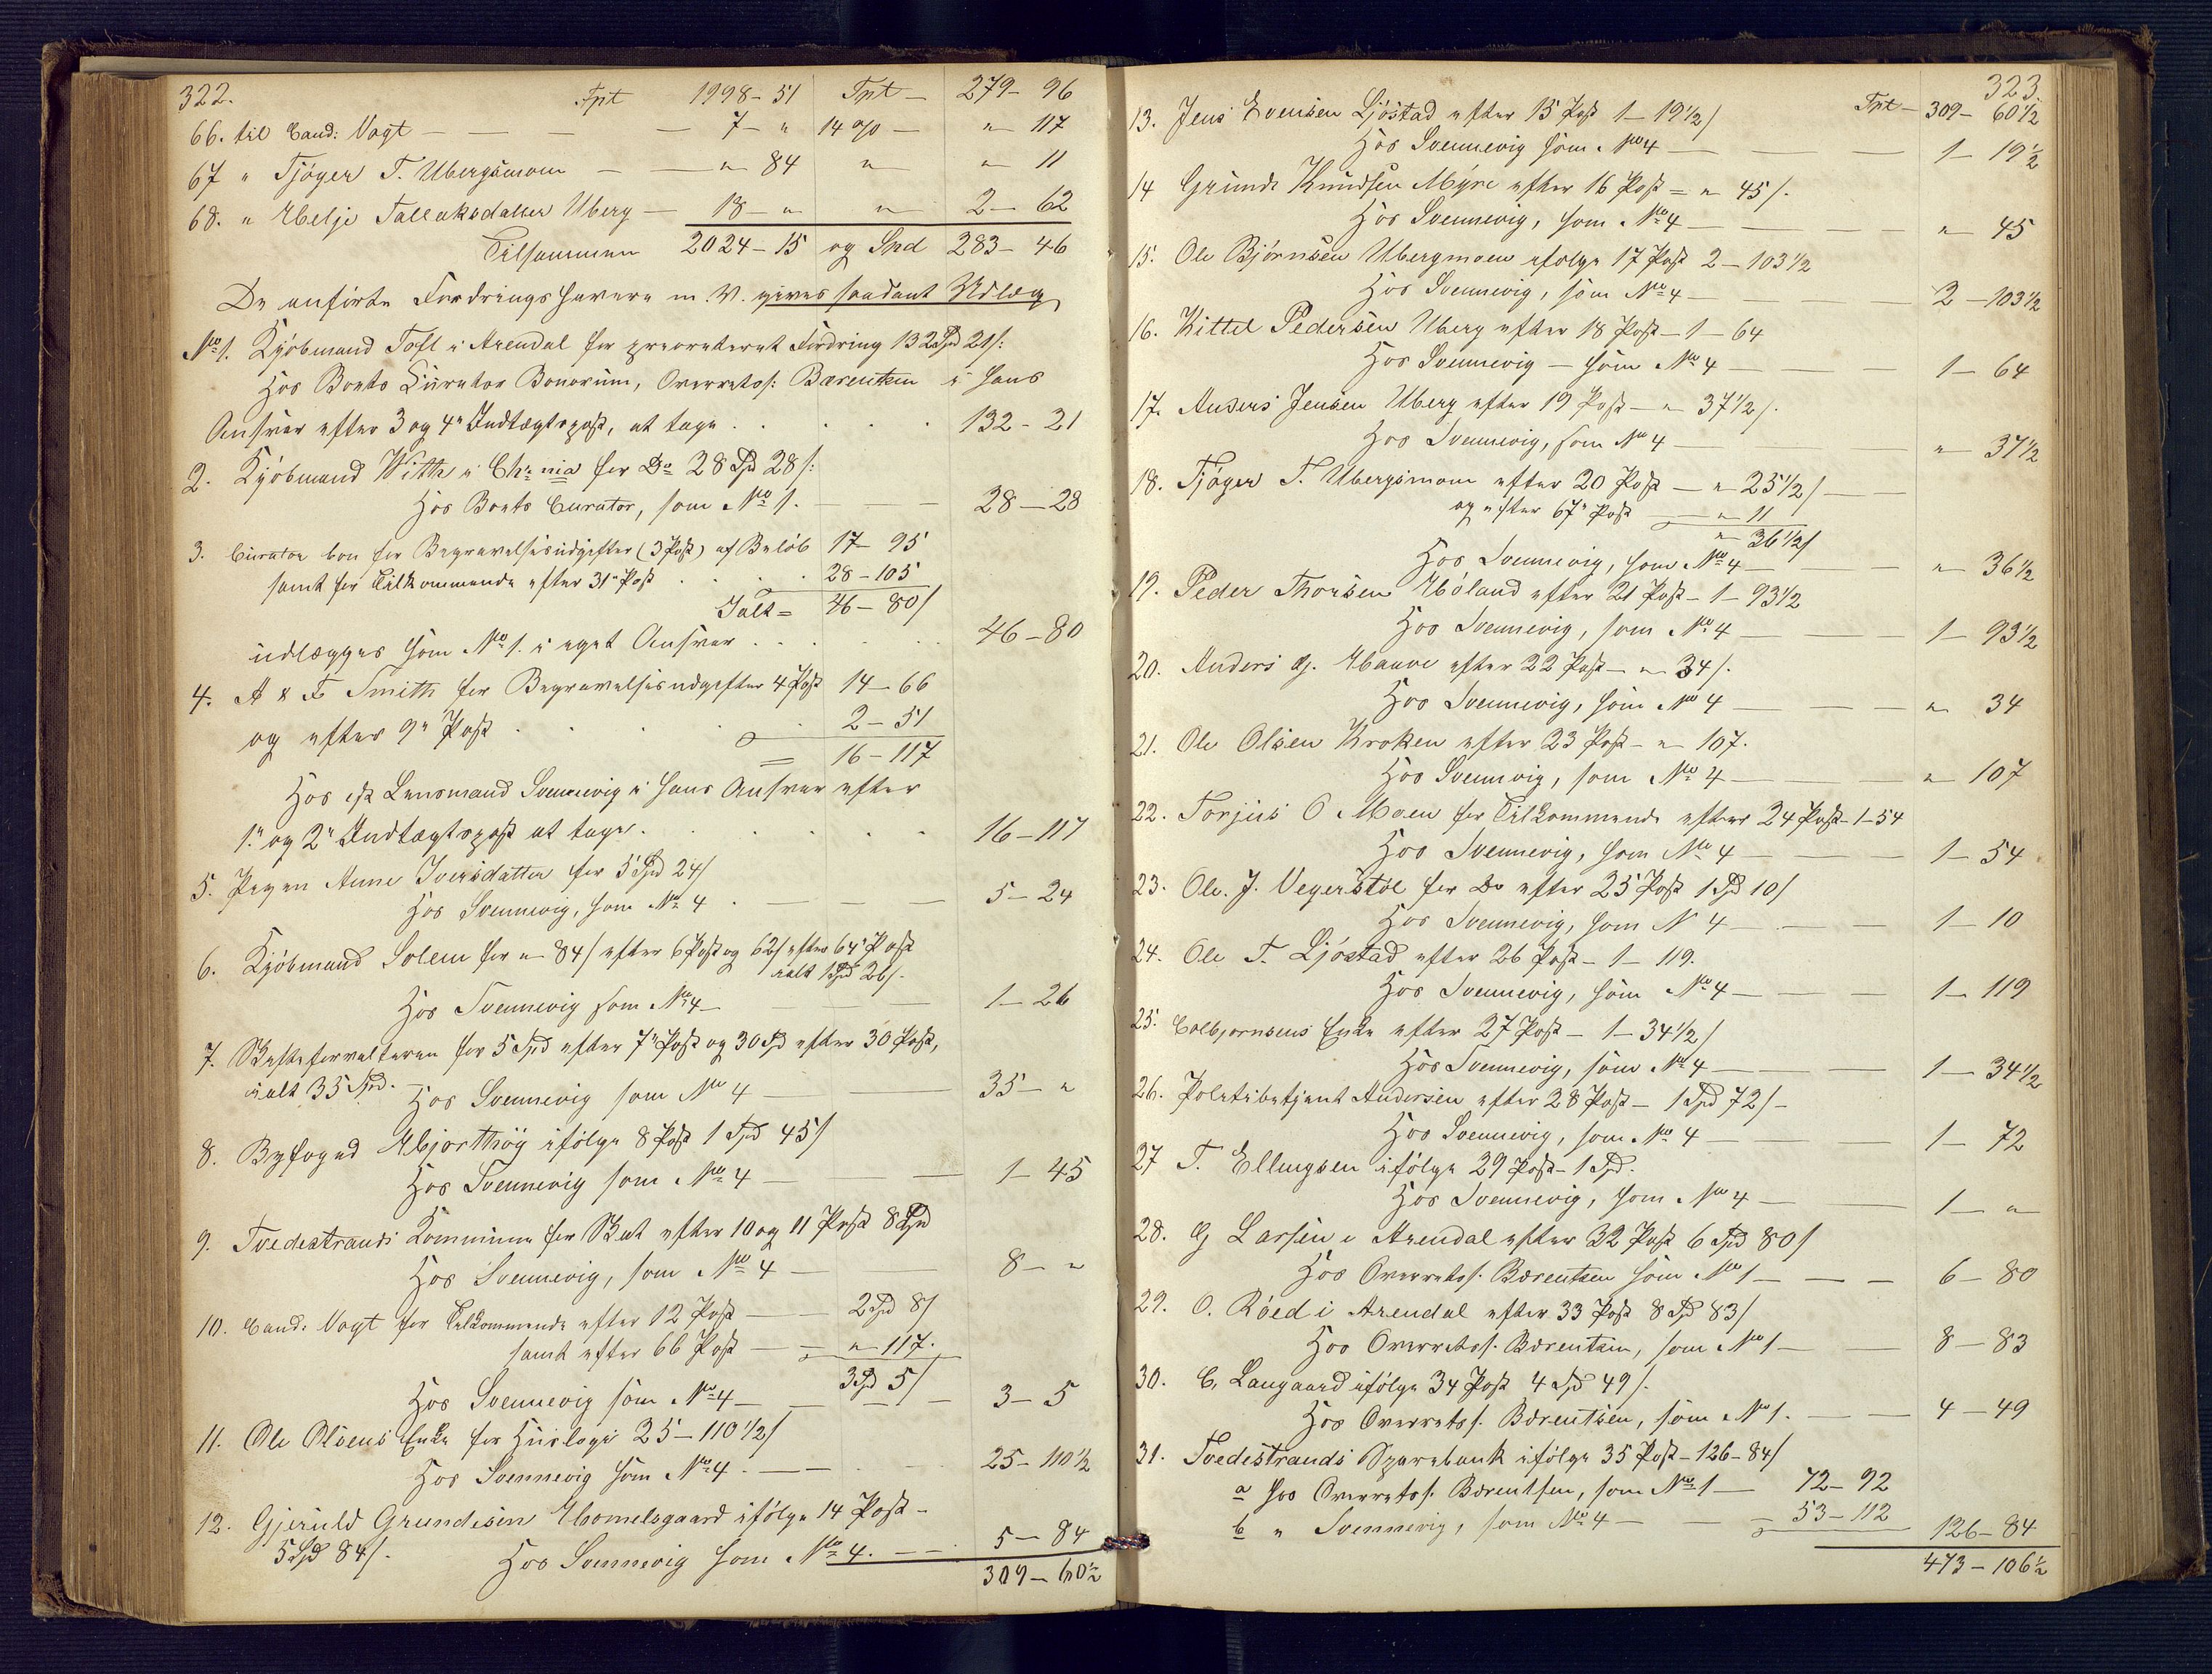 322.
Tpt 1998 - 51 Tpt - 279 - 96
66. til Cand: Vogt - - - 7 - " 14 % - " 117
67 " Tjøger T. Ubergsmoen - - " 84 " " 11
68. " Helje Tallaksdatter Uberg - 18 - " " 2 - 62
Tilsammen 2024 - 15 og Spd 283 - 46
De anførte Fordringshavere m. V. gives saadant Udlæg
No 1. Kjøbmand Toft i Arendal for prioriteret Fordring 132 Spd 21 s:
Hos Boets Curator Bonorum, Overretss: Bærentsen i hans
Ansvar efter 3 og 4de Indtægtspost, at tage . . . . . 132 - 21
2. Kjøbmand With i Chr: nia for Do 28 Spd 28 s:
Hos Boets Curator, som No 1. - - 28 - 28
3. Curator bon for Begravelsesudgifter (3 Post) af Beløb 17 - 95
samt for Tilkommende efter 31te Post . . . . 28 - 105
Ialt = 46 - 80 s
udlægges som No 1. i eget Ansvar . . . . 46 - 80
4. A & F Smith for Begravelsesudgifter 4 Post 14 - 66
og efter 9de Post . . . . 2 - 51
= 16 - 117
Hos Lensmand Svennevig i hans Ansvar efter
1ste og 2den Indtægtspost at tage. . . . . . 16 - 117
5. Pigen Anne Iversdatter for 5 Spd 24 s
Hos Svennevig, som No 4 . - - - 5 - 24
6. Kjøbmand Solem for " 84 s efter 6 Post og 62 s efter 64de Post
ialt 1 Spd 26 s.
Hos Svennevig som No 4 - - - 1 - 26
7. Skifteforvalteren for 5 Spd efter 7de Post og 30 Spd efter 30 Post,
ialt 35 Spd. Hos Svennevig som No 4 - - 35 - "
8. Byfoged Hjorthøy ifølge 8 Post 1 Spd 45 s
Hos Svennevig som No 4 - - 1 - 45
9. Tvedestrands Kommune for Skat efter 10 og 11 Post 8 Spd
Hos Svennevig, som No 4 - - 8 - "
10. Cand: Vogt for Tilkommende efter 12 Post - 2 Spd 8 s
samt efter 66 Post - = " 117.
3 Spd 5 s
Hos Svennevig som No 4 - - - - 3 - 5
11. Ole Olsens Enke for Huusleje 25 - 110 1/2 s
Hos Svennevig som No 4. - - . - 25 - 110 1/2
12. Gjeruld Grundesen Homelsgaard ifølge 14 Post -
5 Spd 84 s. Hos Svennevig som No 4. - - . 5 - 84
309 - 60 1/2
323
Tpt - 309 - 60 1/2
13. Jens Evensen Ljøstad efter 15 Post 1 - 19 1/2 s
Hos Svennevig som No 4 - - - 1 - 19 1/2
14 Grunde Knudsen Myre efter 16 Post = " 45 s.
Hos Svennevig, som No 4 - - - " 45
15. Ole Bjørnsen Ubergmoen ifølge 17 Post 2 - 103 1/2
Hos Svennevig, som No 4 - - - 2 - 103 1/2
16. Kittel Pedersen Uberg efter 18 Post - 1 - 64
Hos Svennevig - som No 4 - - - 1 - 64
17. Anders Jensen Uberg efter 19 Post - " 37 1/2 s.
Hos Svennevig, som No 4 - - " 37 1/2
18. Tjøger T. Ubergsmoen efter 20 Post - " 25 1/2 s - -
og efter 67de Post " 11
" 36 1/2 s
Hos Svennevig, som No 4 - - - " 36 1/2
19. Peder Thorsen Høland efter 21 Post - 1 - 93 1/2
Hos Svennevig, som No 4 - - - 1 - 93 1/2
20. Anders G. Hauve efter 22 Post - " 34 s.
Hos Svennevig, som No 4 - - - " 34
21. Ole Olsen Kroken efter 23 Post - " 107.
Hos Svennevig, som No 4 - - - " 107
22. Torjus O Moen for Tilkommende efter 24 Post - 1 - 54
Hos Svennevig, som No 4 - - - 1 - 54
23. Ole. J. Vegerstøl for Do efter 25 Post 1 Spd 10 s
Hos Svennevig, som N 4 - - - 1 - 10
24. Ole T. Ljøstad efter 26 Post - 1 - 119.
Hos Svennevig, som No 4 - - - 1 - 119
25. Colbjørnsens Enke efter 27 Post - 1 - 34 1/2 s
Hos Svennevig, som No 4 - - - 1 - 34 1/2
26. Politibetjent Andersen efter 28 Post - 1 Spd 72 s -
Hos Svennevig, som No 4 - - - 1 - 72
27 T. Ellingsen ifølge 29 Post - 1 Spd.
Hos Svennevig, som No 4 - - 1 - "
28. G Larsen i Arendal efter 32 Post 6 Spd 80 s
Hos Overretss. Bærentsen som No 1 - - - 6 - 80
29. O. Røed i Arendal efter 33 Post 8 Spd 83 s
Hos Overretss. Bærentsen, som No 1 - - 8 - 83
30. C. Langaard ifølge 34 Post 4 Spd 49 s.
Hos Overretss. Bærentsen, som No 1. - - 4 - 49
31. Tvedestrands Sparebank ifølge 35 Post - 126 - 84 s
a hos Overretss. Bærentsen, som No 1 - 72 - 92
b " Svennevig, som No 4 - - = 53 - 112 126 - 84
473 - 106 1/2